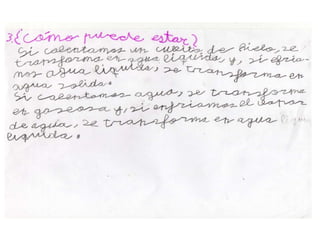 3.{Cómo puede estar}
Si calentamos un cubito de hielo, se
transforma en agua líquida y, si enfria-
mos agua líquida, se transforma en
agua solida.
Si calentamos agua, se transforma
en gaseosa y, si enfriamos el vapor
de agua, se transforma en agua
liquida.